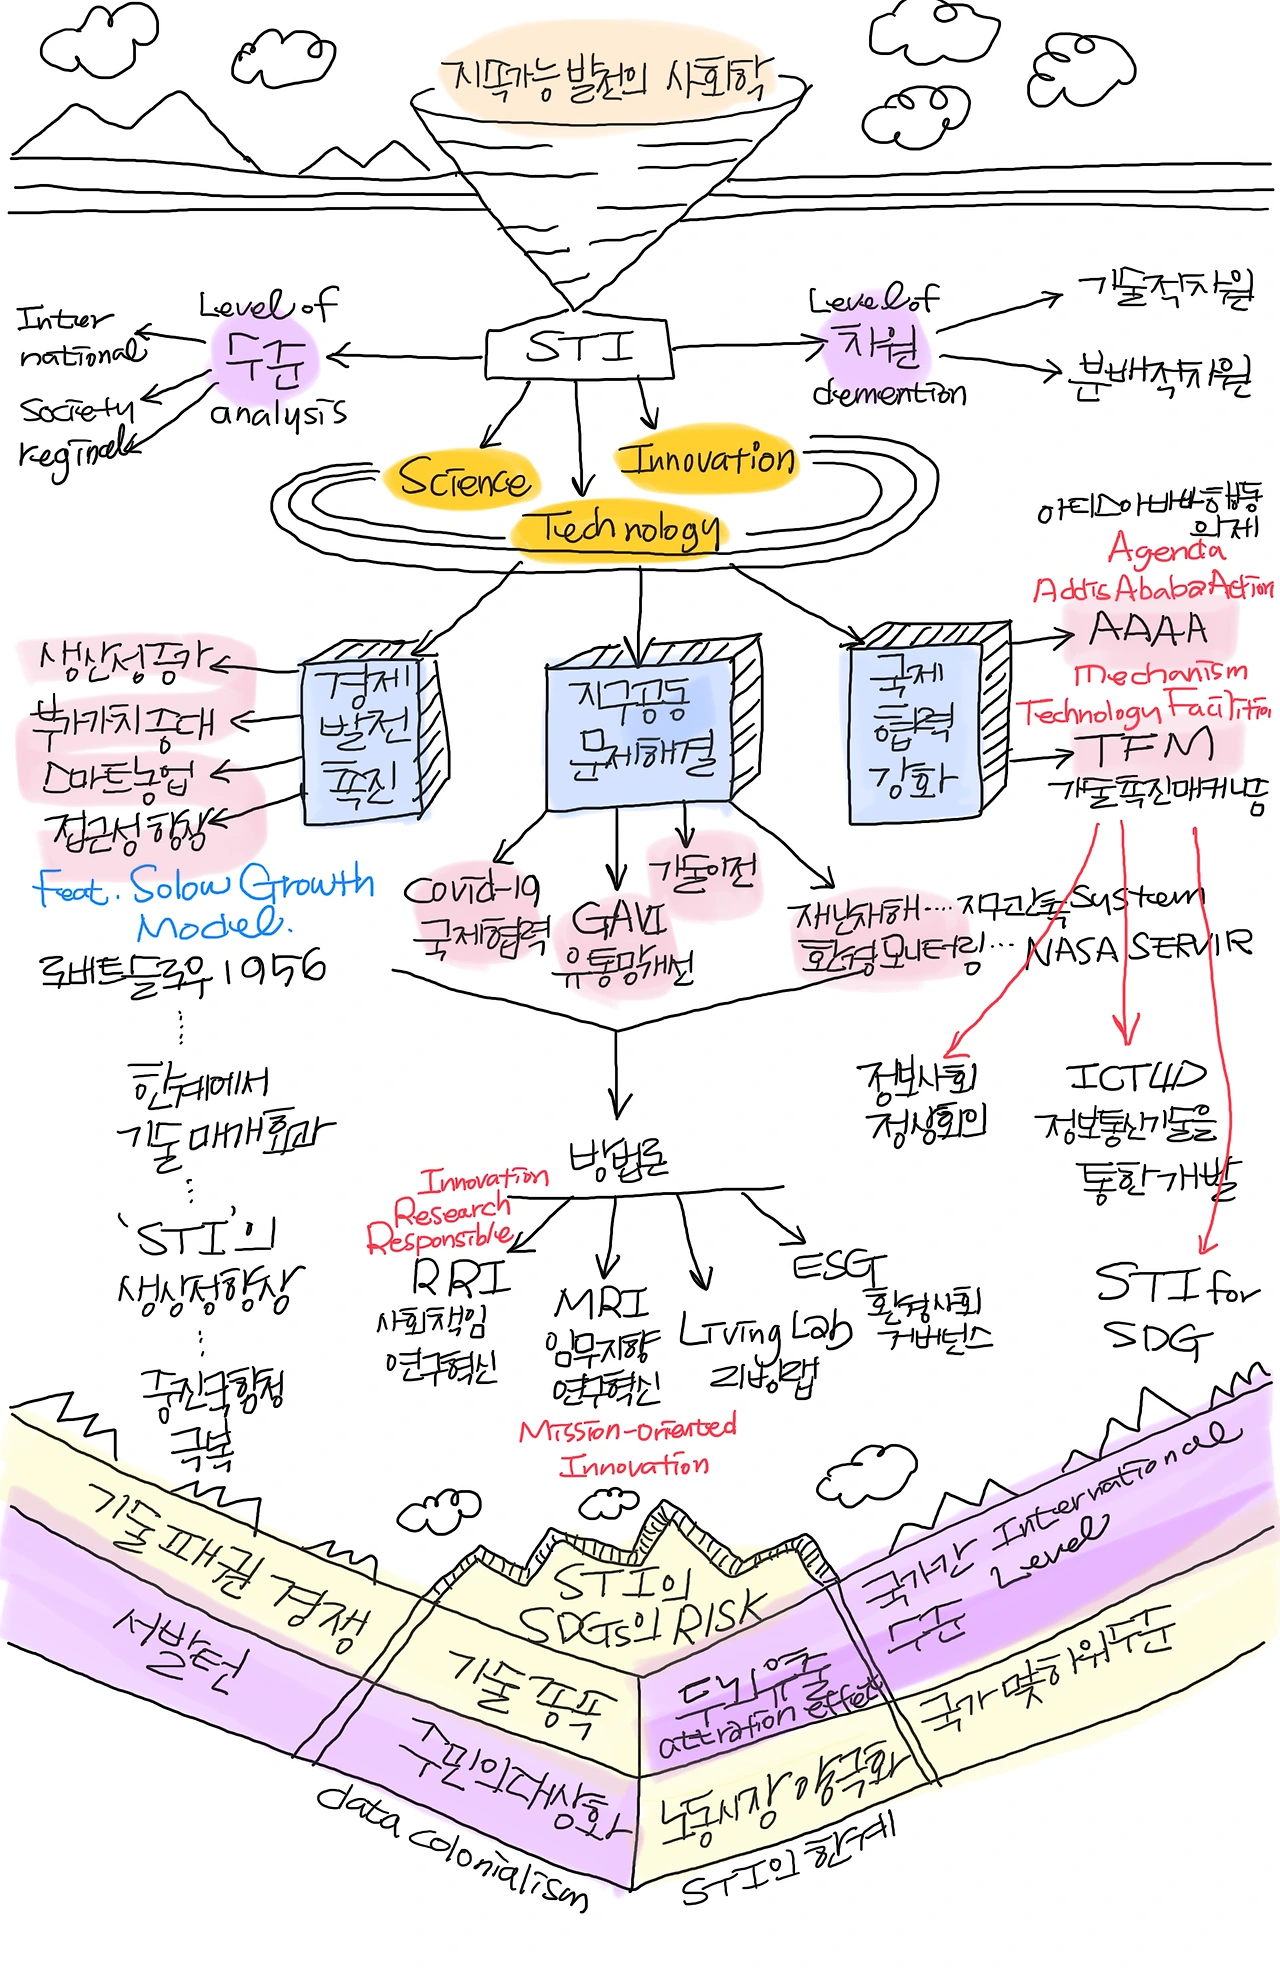 지속가능발전의 사회학
STI
Level of
수준
analysis
Inter
national
Society
reginal
Level of
차원
demention
기술적차원
분배적차원
Science
Innovation
Technology
아디스아바바행동
의제
Agenda
Addis Ababa Action
AAAA
Mechanism
Technology Facilitation
TFM
기술촉진매커니즘
경제
발전
촉진
생산성증가
부가가치증대
스마트농업
접근성향상
Feat. Solow Growth
Model.
로버트솔로우 1956
한계에서
기술매개효과
'STI'의
생상성향상
중진국함정
극복
지구공동
문제해결
Covid-19
국제협력
GAVI
유통망개선
기술이전
재난재해.... 지구관측 System
환경모니터링... NASA SERVIR
국제
협력
강화
정보사회
정상회의
ICT4D
정보통신기술을
통한 개발
STI for
SDG
방법론
Innovation
Research
Responsible
RRI
사회책임
연구혁신
MRI
임무지향
연구혁신
Mission-oriented
Innovation
Living Lab
리빙랩
ESG
환경사회
거버넌스
STI의
SDGs의 RISK
기술패권 경쟁
기술종속
서발턴
주민의대상화
data colonialism
국가간 International
수준 Level
두뇌유출
attration effect
국가 및 하위수준
노동시장 양극화
STI의 한계